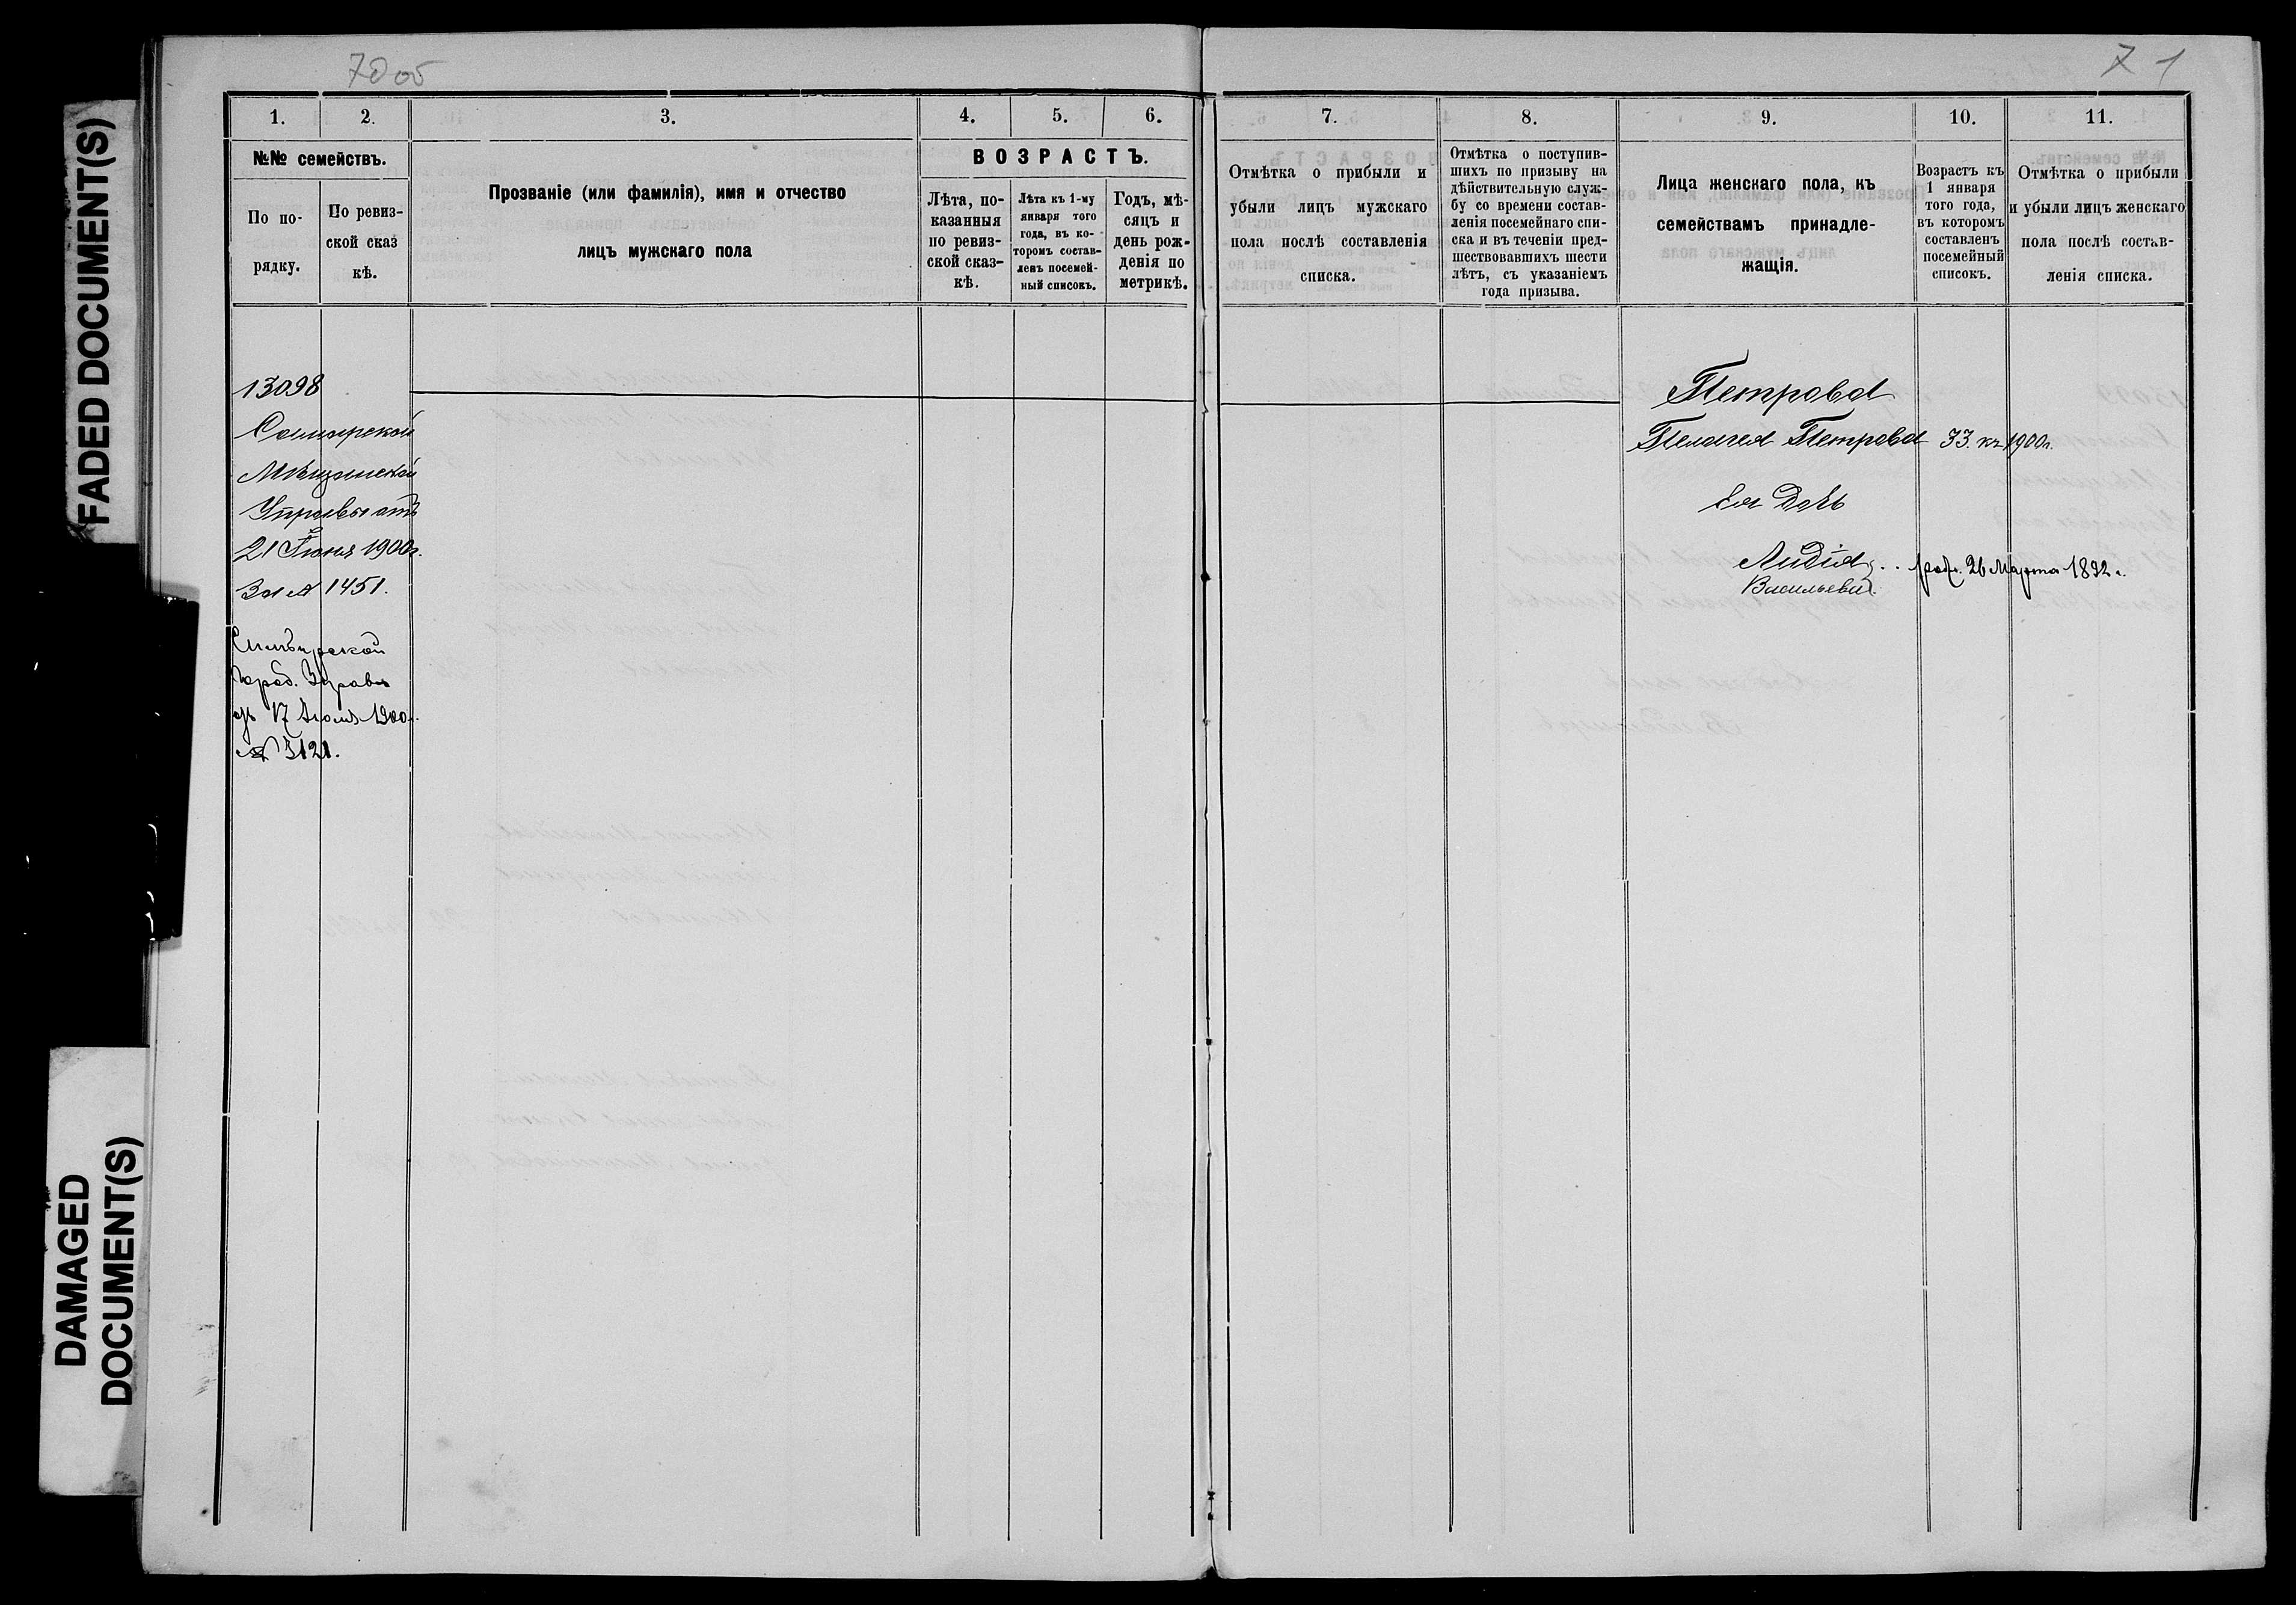 FADED DOCUMENT(S)
DAMAGED
DOCUMENT(S)
70 об
71
1. 2. 3. 4. 5. 6.
№№ семействъ.
По по-
рядку.
По ревиз-
ской сказ
кѣ.
Прозваніе (или фамилія), имя и отчество
лицъ мужскаго пола
ВОЗРАСТЪ.
Лѣта, по-
казанныя
по ревиз-
ской сказ-
кѣ.
Лѣта къ 1-му
января того
года, въ ко-
торомъ состав-
ленъ посемей-
ный списокъ.
Годъ, мѣ-
сяцъ и
день рож-
денія по
метрикѣ.
13098
Самарской
Мѣщанской
Управы отъ
21 Іюня 1900г.
За № 1451.
Симбирской
Город. Управы
отъ 17 Іюля 1900г.
№ 3121.
7. 8. 9. 10. 11.
Отмѣтка о прибыли и
убыли лицъ мужскаго
пола послѣ составленія
списка.
Отмѣтка о поступив-
шихъ по призыву на
дѣйствительную служ-
бу со времени состав-
ленія посемейнаго спи-
ска и въ теченіи пред-
шествовавшихъ шести
лѣтъ, съ указаніемъ
года призыва.
Лица женскаго пола, къ
семействамъ принадле-
жащія.
Возрастъ къ
1 января
того года,
въ которомъ
составленъ
посемейный
списокъ.
Отмѣтка о прибыли
и убыли лицъ женскаго
пола послѣ состав-
ленія списка.
Петрова
Пелагея Петрова 33. къ 1900г.
Ея дочь
Лидія родл. 26 Марта 1892 г.
Васильева.